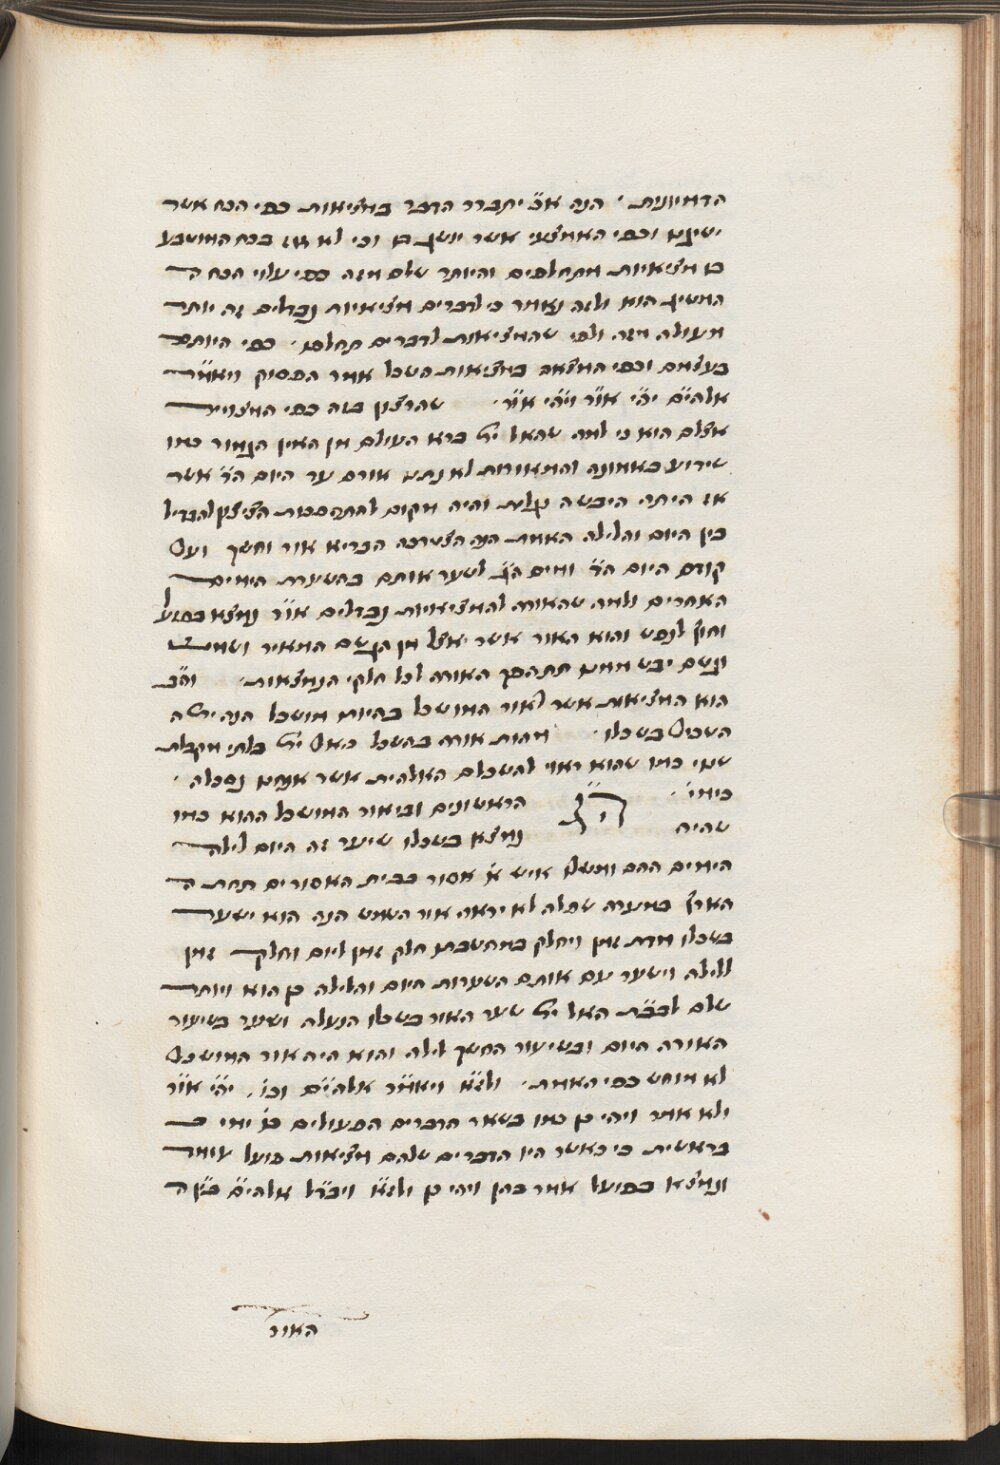 הדמיונית · הנה א״כ יתברר הדבר במציאות כפי הכח אשר
ישיגם וכפי האמצעי אשר יושג בו וכי לא זה בכח המושבע
בו מציאיות מתחלפים והיותר שלם מזה כפי עלוי הכח ה
המשיג הוא ולזה נאמר כי לדברים מציאיות נבדלים זה יותר
מעולה מזה ולפי שהמציאות לדברים תחלף · כפי היותם
בעצמם וכפי המצאם במציאות השכל אמר הפסוק ויאמר
אלהים יהי אור ויהי אור · שהרצון בזה כפי המצוייר
אצלם הוא כי למה שהאל ית׳ ברא העולם מן האין הגמור כמו
שידוע באמונה והמאורות לא נתנו אורם עד היום הד׳ אשר
אז היתה היבשה נגלית והיה מקום להתהפכות הניצוץ להבדיל
בין היום והלילה האמת הנה הצטרכה הבריאה אור וחשך ועל
קודם היום הד׳ ומים הג׳ לשער אותם בהשערת הימים
האחרים ולמה שהאורה להמציאיות נבדלים אור נמצא בפועל
וחוץ לנפש והוא האור אשר יאצל מן הגשם המאיר ושמש
וגשם יבש ממנו תתהפך האורה לכל חלקי הנמצאות · והב׳
הוא המציאות אשר לאור המושכל בהיות מושכל הנה ית׳ ה
השכיל בשכלו · מהות אורה בהשכל האל ית׳ בלתי מקבלת
שנוי כמו שהוא ראוי להשכלם האלהית אשר אנחנו נסכלה ·
כימי · הן הראשונים ובאור המושכל ההוא כמו
שהיה נמצא בשכלו שיער זה היום לילה
הימים ההם ומשלו איש א׳ אסור בבית האסורים תחת ה
הארץ במערה שפלה לא יראה אור השמש הנה הוא ישער
בשכלו מדת זמן ויחלק במחשבתו חלק זמן ליום וחלק זמן
ללילה וישער עם אותם השערות היום והלילה כן הוא ויותר
שלם לבב״ת האל ית׳ שער האור בשכלו הנעלה ושער בשיעור
האורה היום ובשיעור החשך לילה והוא היה אור המושכל
לא מוחש כפי האמת · ולז״א ויאמר אלהים וכו׳ · יהי אור
ולא אמר ויהי כן כמו בשאר הדברים הפעולים בו׳ ימי ב
בראשית כי כאשר היו הדברים שלהם מציאות פועל עומד
ונמצא בפועל אמר בהן ויהי כן ולז״א ויבדל אלהים בין ה
האור